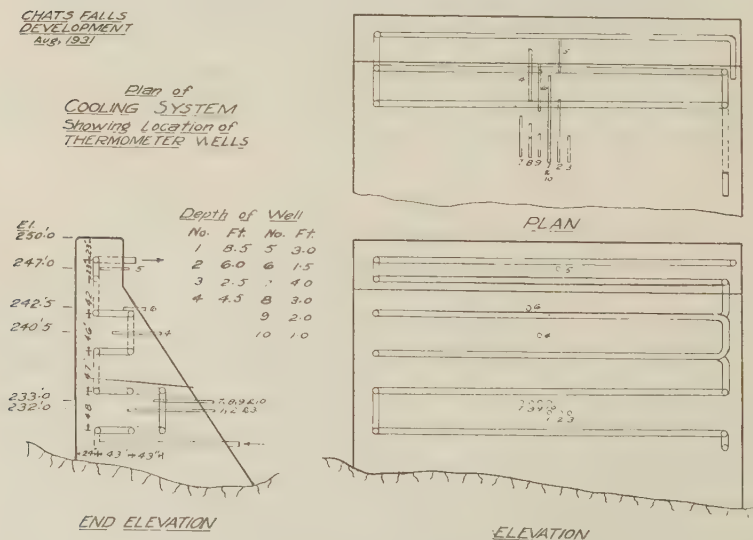 CHATS FALLS
DEVELOPMENT
Aug, 1931
Plan of
COOLING SYSTEM
Showing Location of
THERMOMETER WELLS
PLAN
5
4
6
7 8 9 1 2 3
&
10
Depth of Well
No. Ft. No. Ft.
1 8.5 5 3.0
2 6.0 6 1.5
3 2.5 4.0
4 4.5 8 3.0
9 2.0
10 1.0
El.
250.0
247.0
242.5
240.5
233.0
232.0
5
6
4
7, 8, 9 & 10
1, 2 & 3
END ELEVATION
5
6
4
1 2 3
ELEVATION